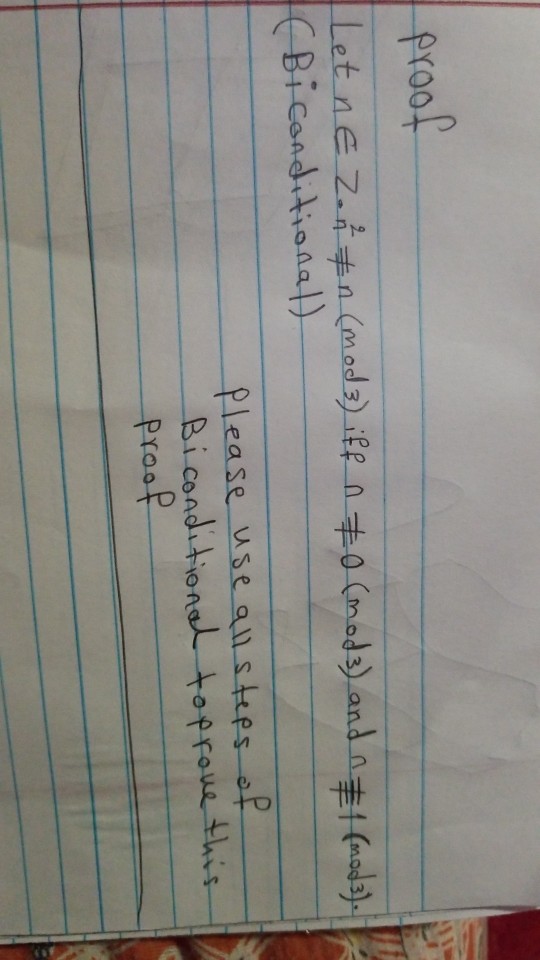 proof
Let n ∈ Z. n² ≢ n (mod 3) iff n ≢ 0 (mod 3) and n ≢ 1 (mod 3).
(Biconditional)
please use all steps of
Biconditional to prove this
proof